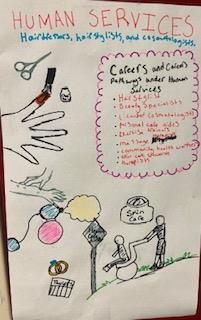 HUMAN SERVICES
Hairdressers, hairstylists, and cosmotologists.
Careers and Career
Pathways under Human
Services
• Hairstylist
• Beauty Specialists
• Licensed Cosmetologists
• Personal care aides
• Exercise trainers
• massage
• community health workers
• skin care specialists
• therapists
Skin
Care